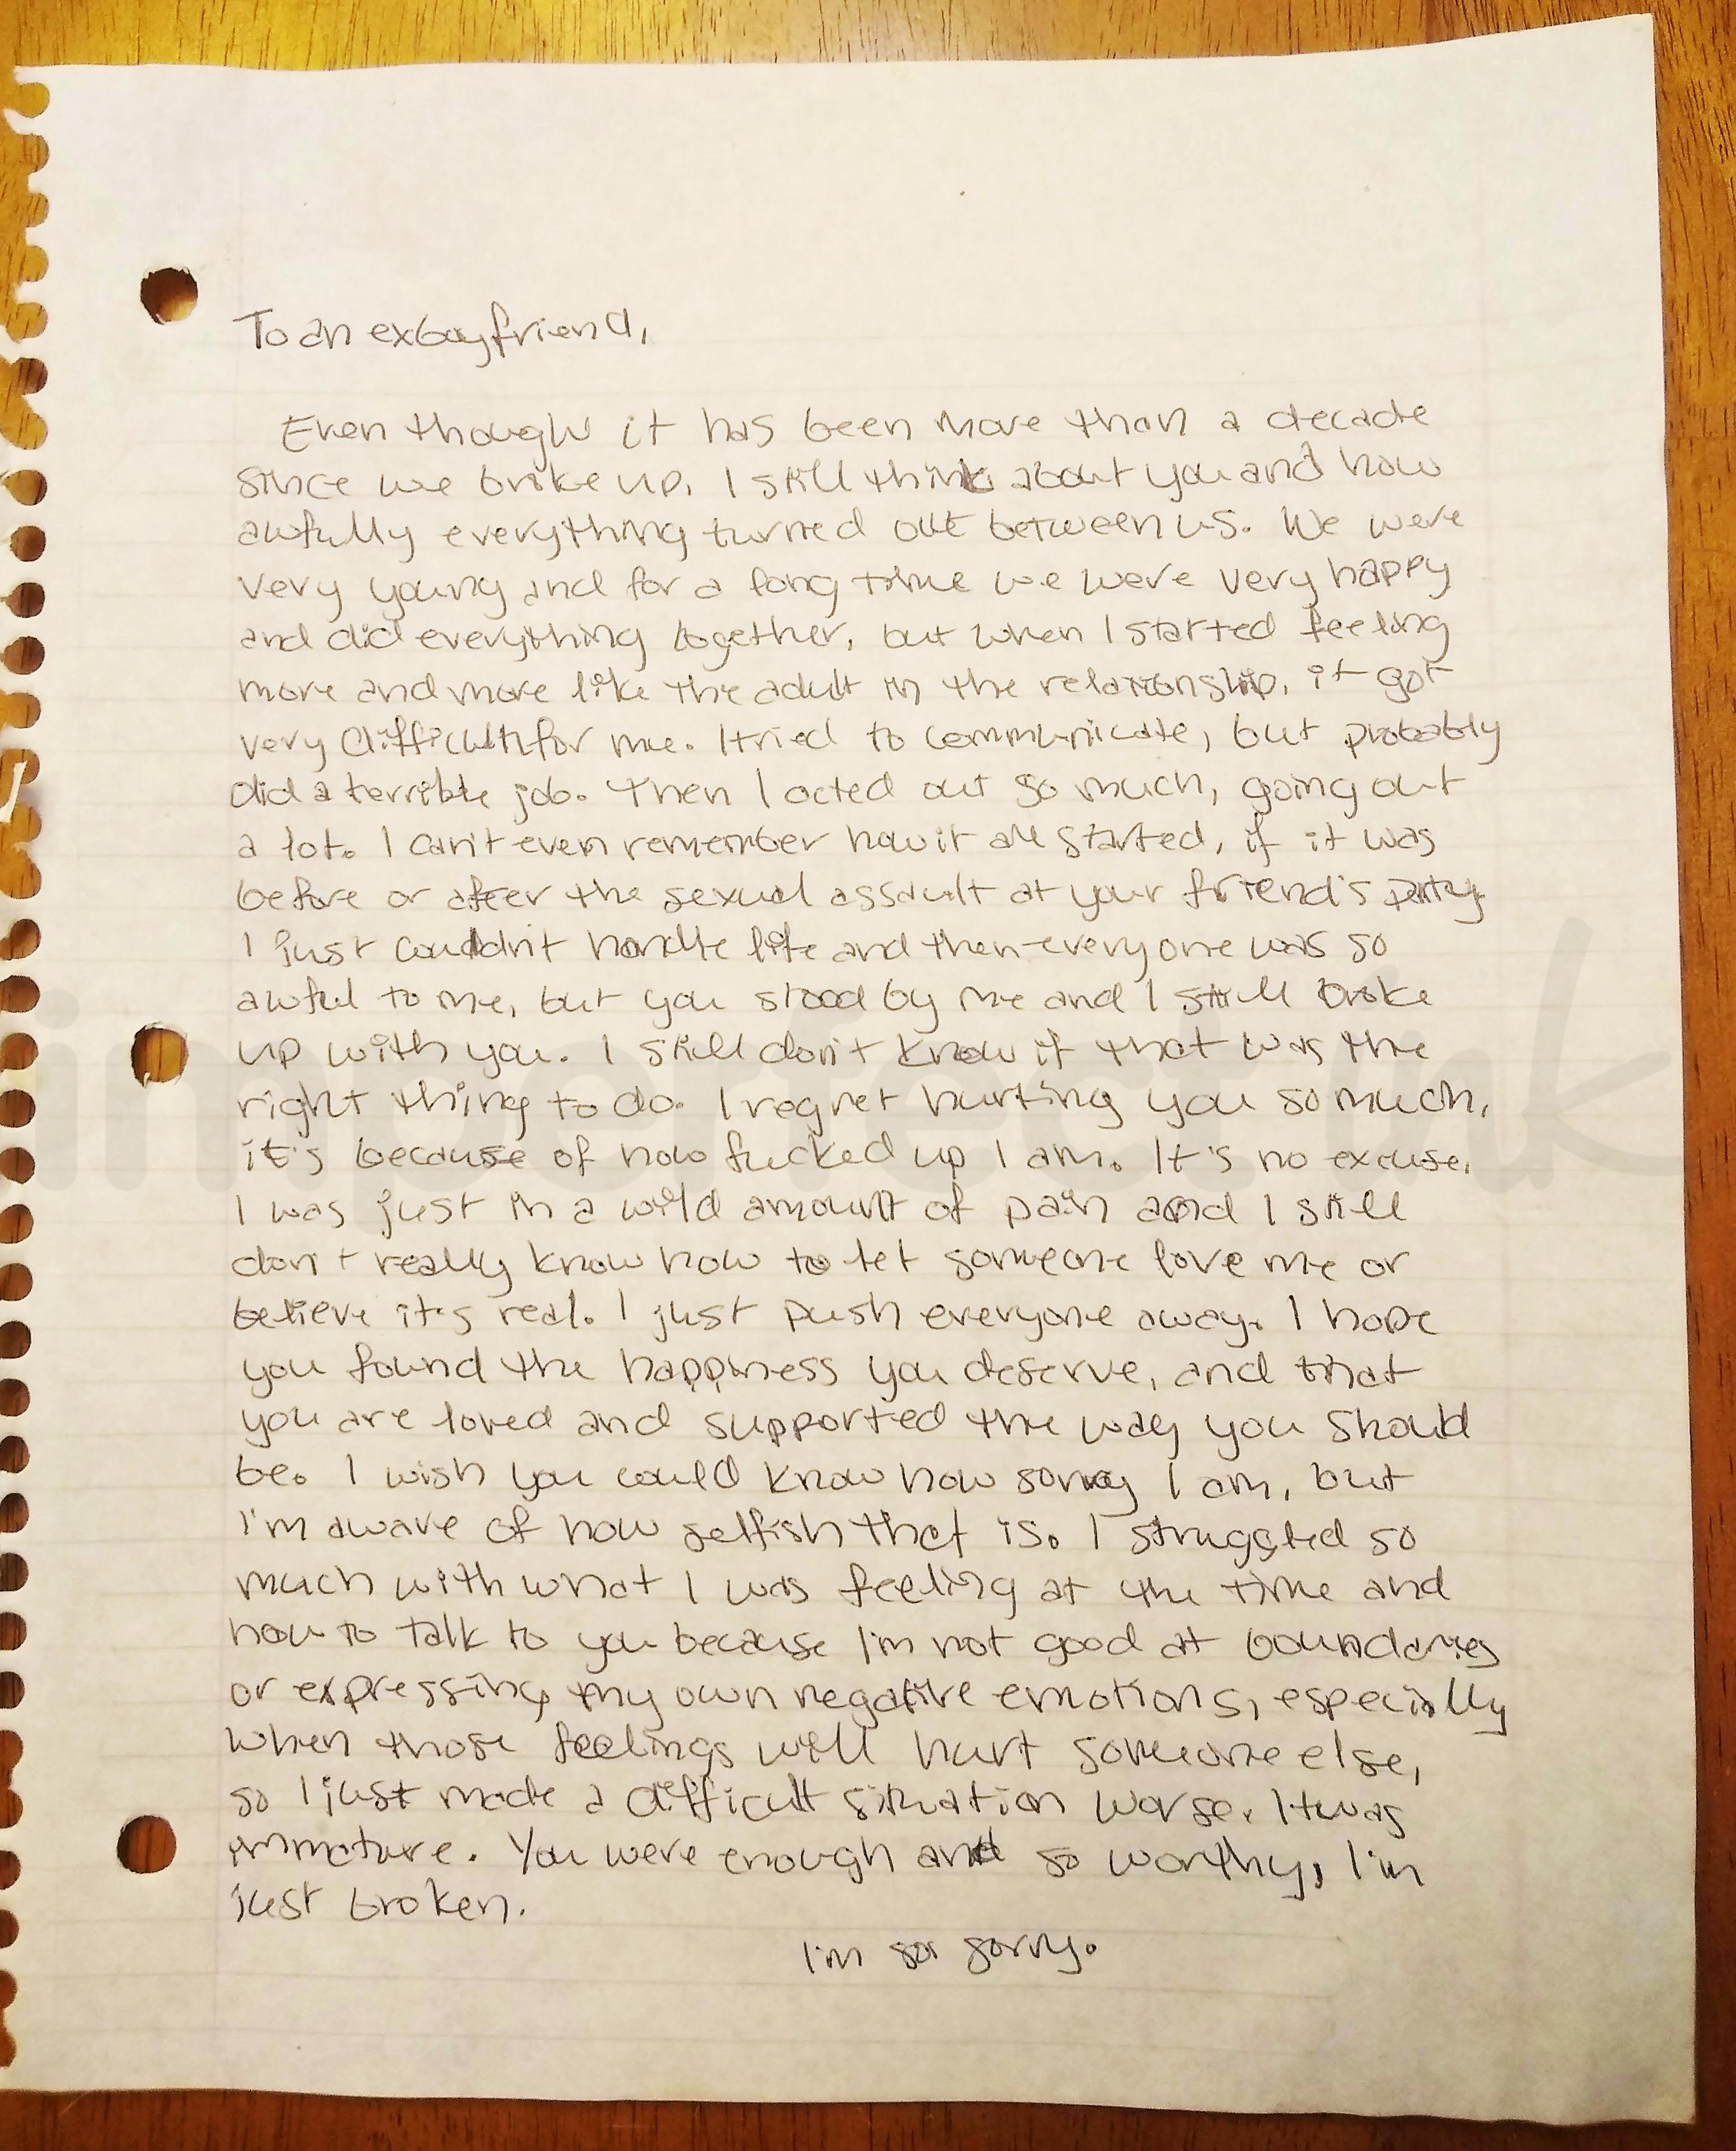 To an exboyfriend,
Even though it has been more than a decade
since we broke up, I still think about you and how
awfully everything turned out between us. We were
very young and for a long time we were very happy
and did everything together, but when I started feeling
more and more like the adult in the relationship, it got
very difficult for me. I tried to communicate, but probably
did a terrible job. Then I acted out so much, going out
a lot. I can't even remember how it all started, if it was
before or after the sexual assault at your friend's party.
I just couldn't handle life and then everyone was so
awful to me, but you stood by me and I still broke
up with you. I still don't know if that was the
right thing to do. I regret hurting you so much,
it's because of how fucked up I am. It's no excuse,
I was just in a wild amount of pain and I still
don't really know how to let someone love me or
believe it's real. I just push everyone away. I hope
you found the happiness you deserve, and that
you are loved and supported the way you should
be. I wish you could know how sorry I am, but
I'm aware of how selfish that is. I struggled so
much with what I was feeling at the time and
how to talk to you because I'm not good at boundaries
or expressing my own negative emotions, especially
when those feelings will hurt someone else,
so I just made a difficult situation worse. It was
immature. You were enough and so worthy, I'm
just broken.
I'm so sorry.